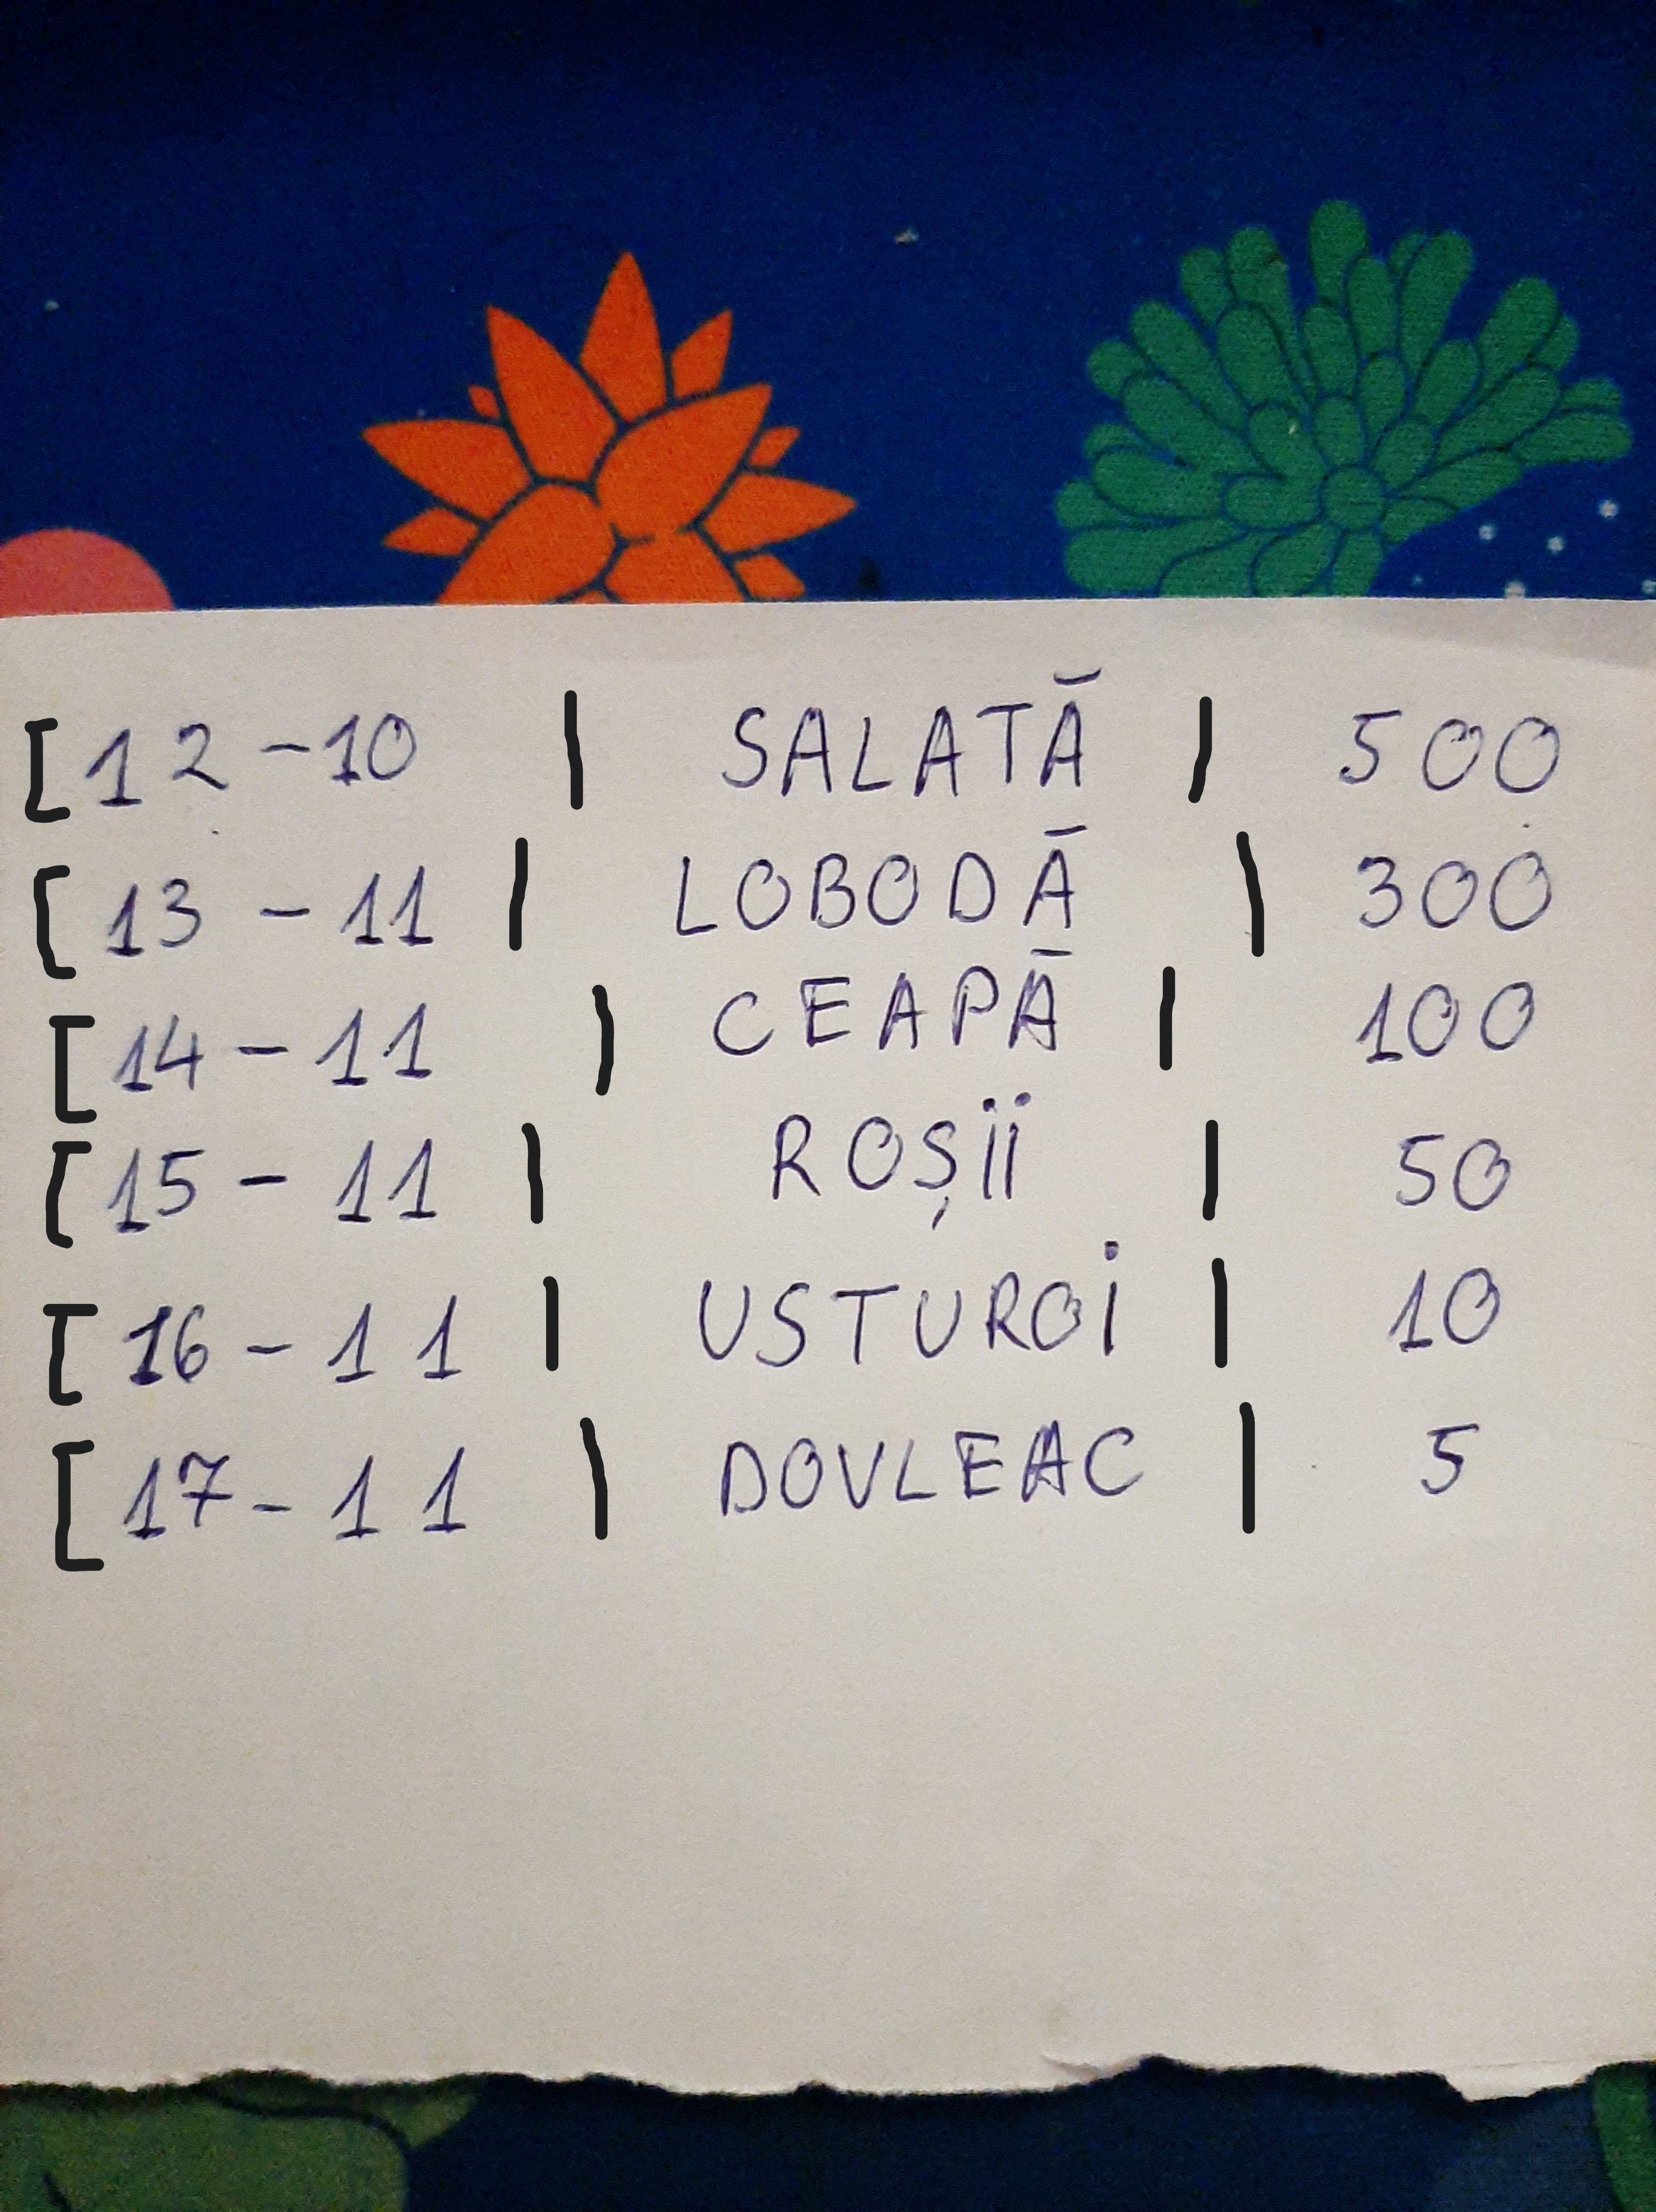 [12-10 | SALATĂ | 500
[13-11 | LOBODĂ | 300
[14-11 | CEAPĂ | 100
[15-11 | ROȘii | 50
[16-11 | USTUROi | 10
[17-11 | DOVLEAC | 5